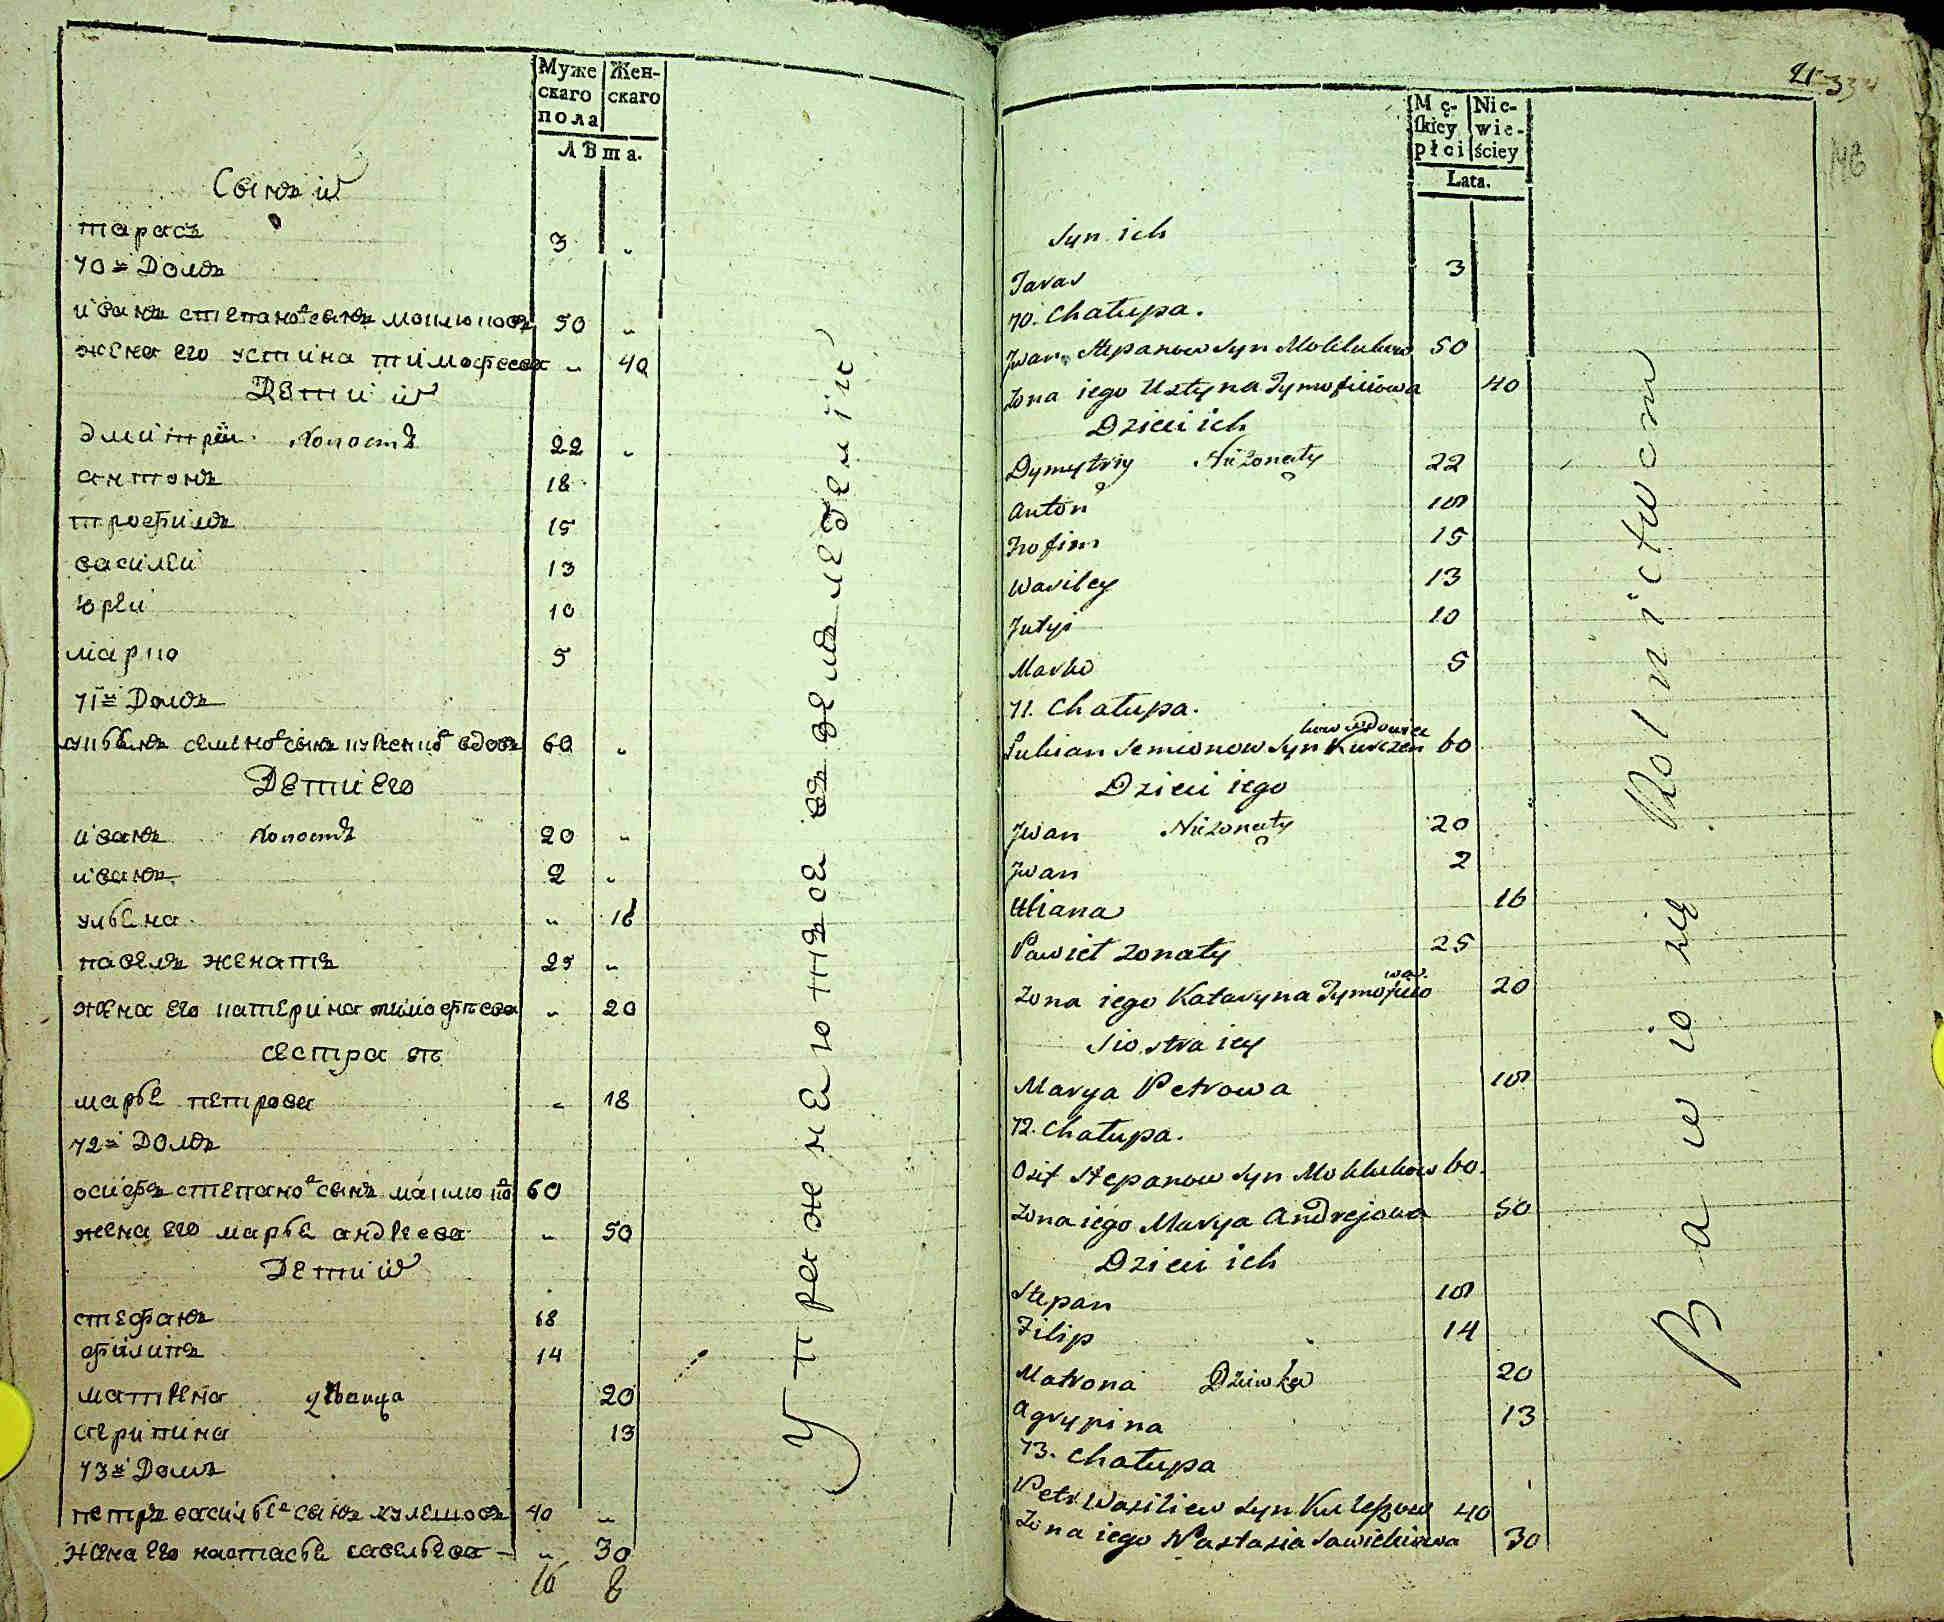 Муже Жен-
скаго скаго
пола
лѣта.
Сынъ их
тарасъ 3 „
70й Домъ
иванъ степановъ сынъ моклюковъ 50 „
жена его устина тимофеева „ 40
Дети их
дмитріи холостъ 22 „
антонъ 18
трофимъ 15
василеи 13
юреи 10
марко 5
71й Домъ
лукьянъ семеновъ сынъ курченковъ вдовъ 60 „
Дети его
иванъ холостъ 20 „
иванъ 2 „
ульена „ 16
павелъ женатъ 25 „
жена его катерина тимофѣева „ 20
сестра еѣ
марье петрова „ 18
72й Домъ
осифъ степановъ сынъ маклюковъ 60
жена его марье андреева „ 50
Дети их
стефанъ 18
филипъ 14
матрена девица 20
агрипина 13
73й Домъ
петръ васильевъ сынъ кулешовъ 40 „
жена его настасье савельева „ 30
16 8
Упражнеются въ земледеліи
21 334
148
Mę- Nie-
skiey wie-
płci ściey
Lata.
Syn ich
Taras 3
70. Chałupa.
Jwan Stepanow Syn Moklukow 50
Zona iego Ustyna Tymofiiowa 40
Dzieci ich
Dymytriy Nieżonaty 22
Anton 18
Trofim 15
Wasiley 13
Juryi 10
Marko 5
71. Chałupa.
Łukian Semionow Syn Kurczen kow wdowiec 60
Dzieci iego
Jwan Nieżonaty 20
Jwan 2
Uliana 16
Pawieł żonaty 25
Zona iego Kataryna Tymofiio wa. 20
Siostra iey
Marya Petrowa 18
72. Chałupa.
Osif Stepanow Syn Moklukow 60.
Zona iego Marya Andrejowa 50
Dzieci ich
Stepan 18
Filip 14
Matrona Dziewka 20
Agrypina 13
73. Chałupa
Petr Wasiliew Syn Kuleszow 40
Zona iego Nastasia Sawieliewa 30
Bawio się Rolnictwem